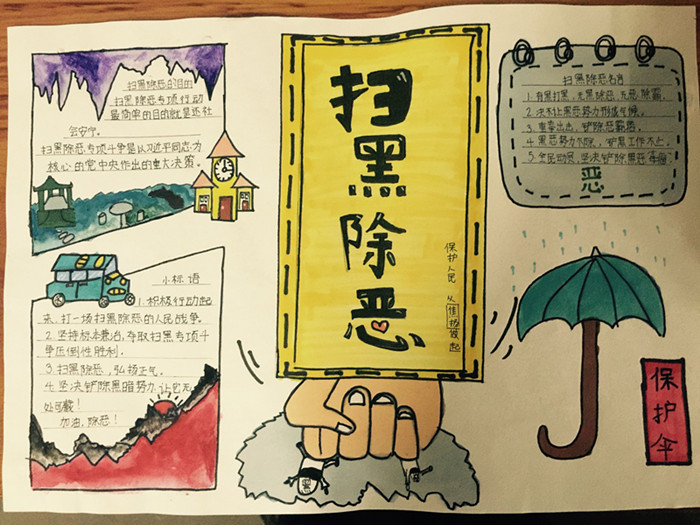 扫黑除恶的目的
扫黑除恶专项行动
最简单的目的就是还社
会安宁。
扫黑除恶专项斗争是以习近平同志为
核心的党中央作出的重大决策。
小标语
1.积极行动起
来,打一场扫黑除恶的人民战争。
2.坚持标本兼治,夺取扫黑专项斗
争压倒性胜利.
3.扫黑除恶,弘扬正气.
4.坚决铲除黑暗势力,让它无
处可藏!
加油,除恶!
扫黑除恶
保护人民 从 起
黑
扫黑除恶名言
1.有黑打黑,无黑除恶,无恶除霸.
2.决不让黑恶势力形成气候.
3.重拳出击,铲除恶霸.
4.黑恶势力不除,铲黑工作不止.
5.全民动员,坚决铲除黑恶毒瘤
恶
保护伞